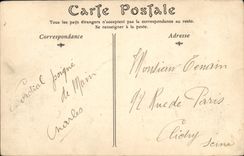 Carte Postale
Tous les pays étrangers n'acceptent pas la correspondance au recto.
Se renseigner à la poste.
Correspondance
Adresse
Cordial
de Main
Charles
Monsieur
92 Rue de Paris
Clichy
Seine